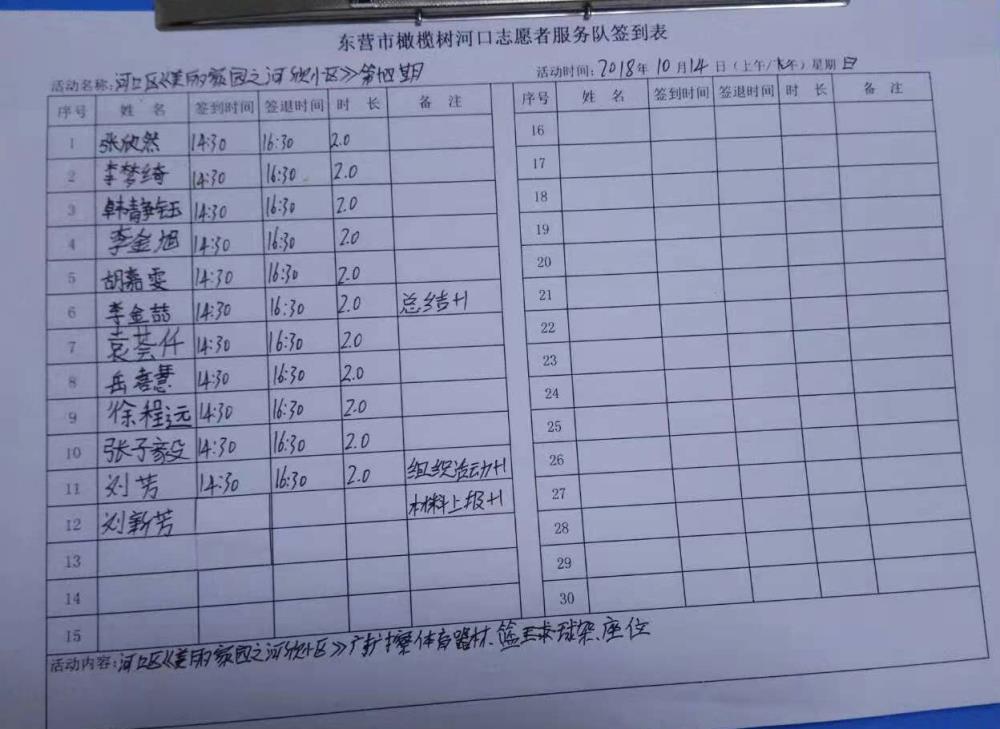 东营市橄榄树河口志愿者服务队签到表
活动名称:河口区《美丽家园之河欣小区》第四期 活动时间:2018年10月14日(上午/下午)星期日
序号 姓 名 签到时间 签退时间 时 长 备 注 序号 姓 名 签到时间 签退时间 时 长 备 注
1 张欣然 14:30 16:30 2.0 16
2 李梦绮 14:30 16:30 2.0 17
3 韩静钰 14:30 16:30 2.0 18
4 李金旭 14:30 16:30 2.0 19
5 胡嘉雯 14:30 16:30 2.0 20
6 李金喆 14:30 16:30 2.0 总结+1 21
7 袁荟仟 14:30 16:30 2.0 22
8 岳喜慧 14:30 16:30 2.0 23
9 徐程远 14:30 16:30 2.0 24
10 张子豪 14:30 16:30 2.0 25
11 刘芳 14:30 16:30 2.0 组织活动+1 26
12 刘新芳 材料上报+1 27
13 28
14 29
15 30
活动内容:河口区《美丽家园之河欣小区》擦体育器材、篮球架、座位